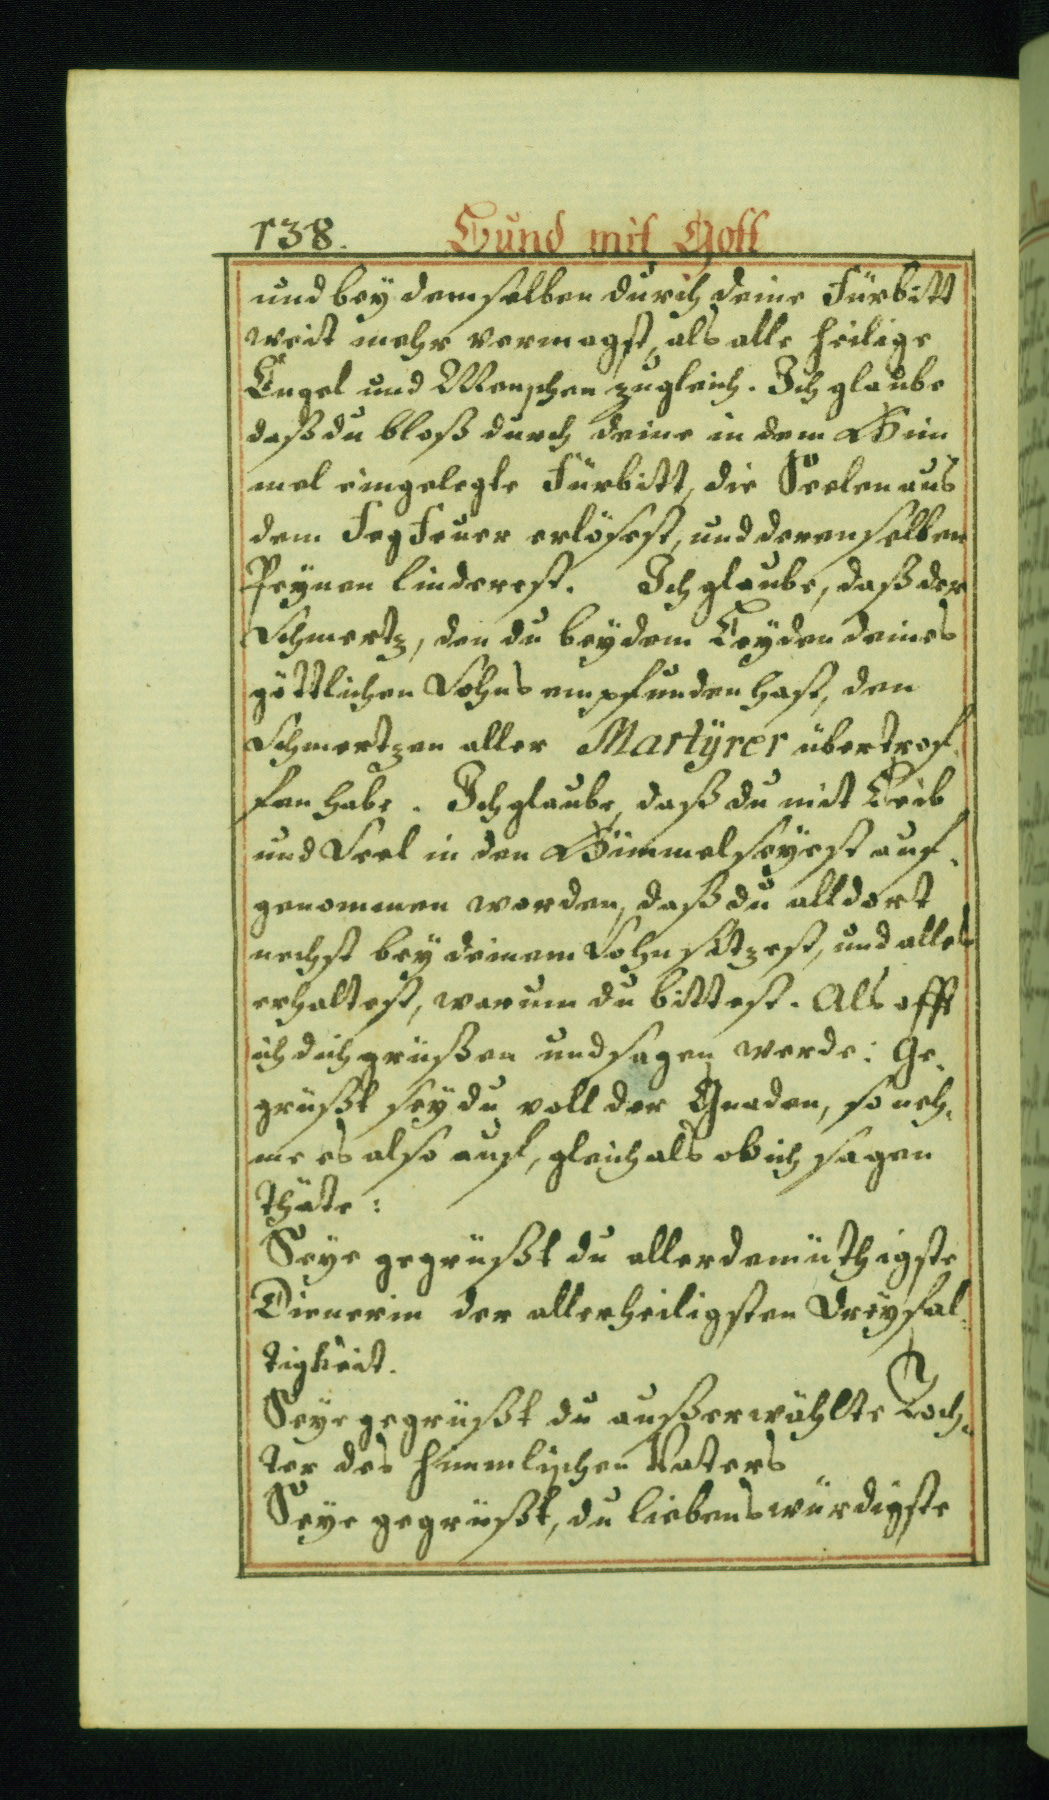 138. Bund mit Gott
und beÿ demselben durch deine Fürbitt
weit mehr vermagst, als alle heilige
Engel und Menschen zugleich. Ich glaube
daß du bloß durch deine in dem Him
mel eingelegte Fürbitt, die Seelen aus
dem Fegfeuer erlösest, und derenselben
Peÿnen linderest. Ich glaube, daß der
Schmertz, den du beÿ dem Leÿden deines
göttlichen Sohns empfunden hast, den
Schmertzen aller Martÿrer übertrof-
fen habe. Ich glaube, daß du mit Leib
und Seel in den Himmel seÿest auf-
genommen worden, daß du alldort
nechst beÿ deinem Sohn sitzest, und alles
erhaltest, warum du bittest. Als offt
ich dich grüßen und sagen werde: Ge-
grüßt seÿ du voll der Gnaden, so neh-
me es also auf, gleich als ob ich sagen
thäte:
Seÿe gegrüßt du allerdemüthigste
Dienerin der allerheiligsten Dreÿfal-
tigkeit.
Seÿe gegrüßt du außerwählte Toch-
ter des himmlischen Vaters
Seÿe gegrüßt, du liebenswürdigste